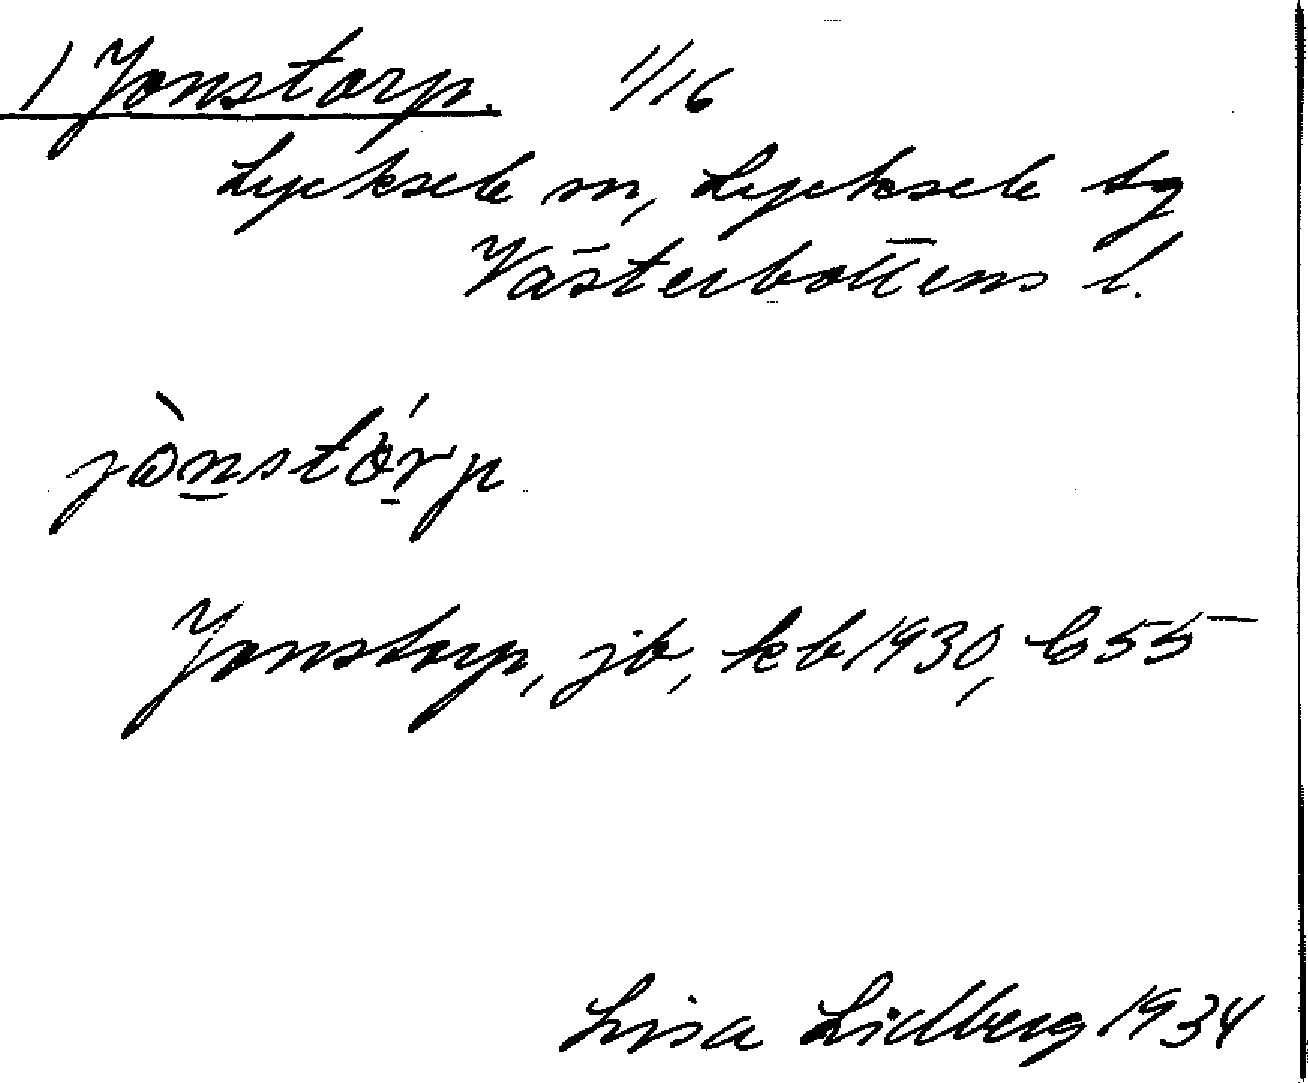 1 Jonstorp. 1/16
Lycksele m, Lycksele sg
Västerbottens l.
jònstǻrp
Jonstorp, jb, kb 1930, b 55
Lisa Lidberg 1934